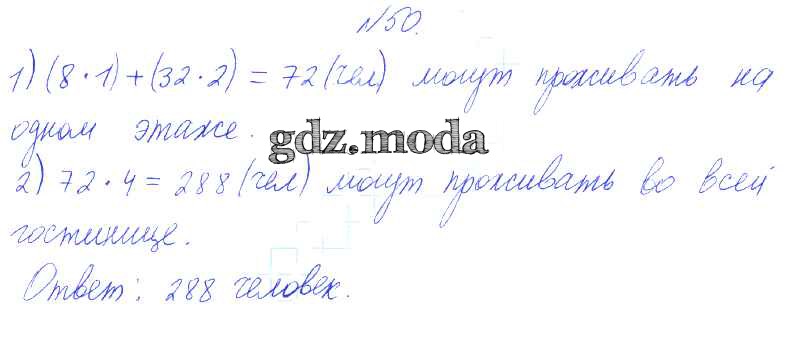 №50.
1) (8·1)+(32·2) = 72 (чел) могут проживать на
одном этаже.
gdz.moda
2) 72·4 = 288 (чел) могут проживать во всей
гостинице.
Ответ: 288 человек.